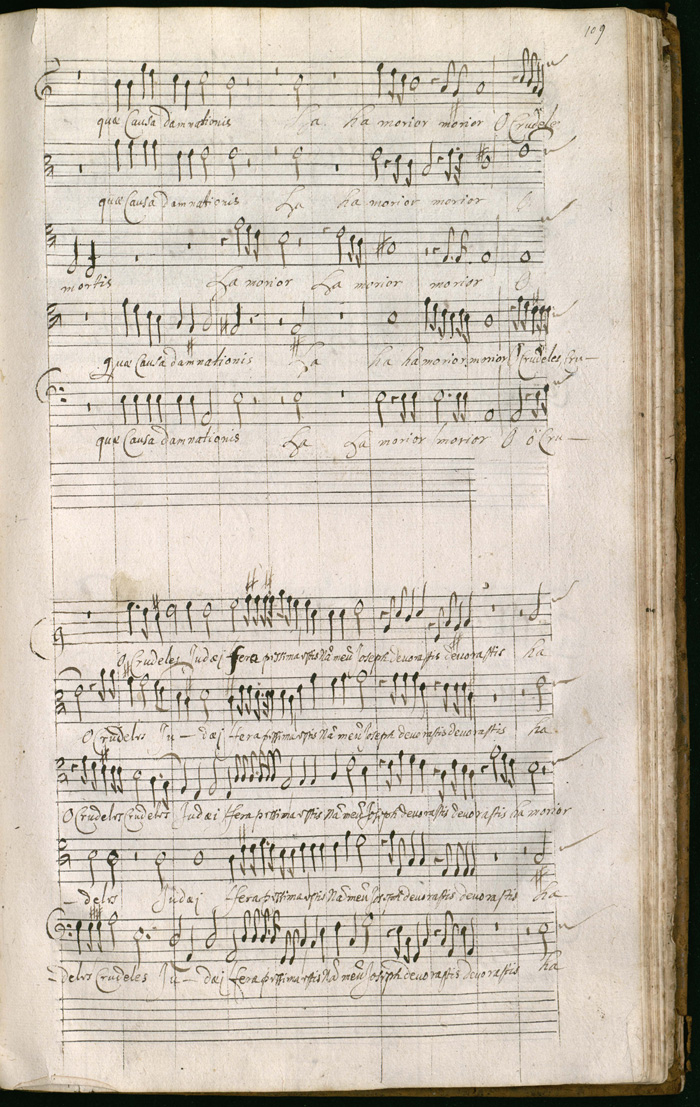 109
quæ Causa damnationis ha ha morior morior O Crudeles
quæ Causa damnationis ha ha morior morior O
mortis ha morior ha morior morior O
Quæ Causa damnationis ha ha ha morior morior O Crudeles Cru-
quæ Causa damnationis ha ha morior morior O ô Cru-
O Crudeles Judæi fera pessima estis Nā meū Joseph devorastis devorastis ha
O Crudeles Ju- dæi fera pessima estis Nā meū Joseph devorastis devorastis ha
O Crudeles Crudeles Judæi fera pessima estis Nā meū Joseph devorastis devorastis ha morior
-deles Judæi fera pessima estis Nā meū Joseph devorastis devorastis ha
-deles Crudeles Ju- dæi fera pessima estis Nā meū Joseph devorastis devorastis ha